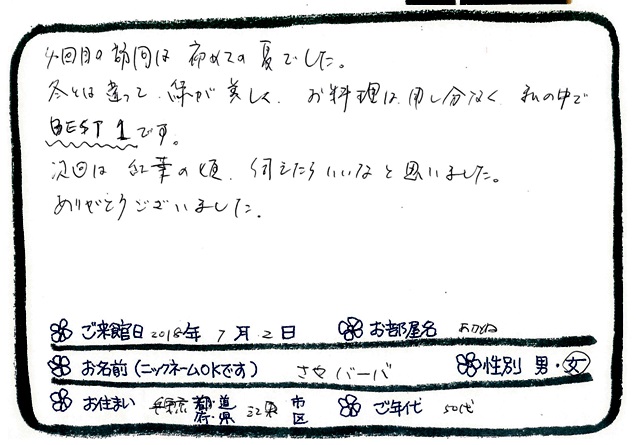 4回目の訪問は 初めての夏でした。
冬とは違って、緑が美しく、お料理は、申し分なく、私の中で
BEST 1です。
次回は 紅葉の頃、伺えたらいいなと思いました。
ありがとうございました。
ご来館日 2018年 7月 2日 お部屋名 あかね
お名前(ニックネームOKです) さやバーバ 性別 男・女
お住まい 都・道 府・県 市 区 ご年代 50代